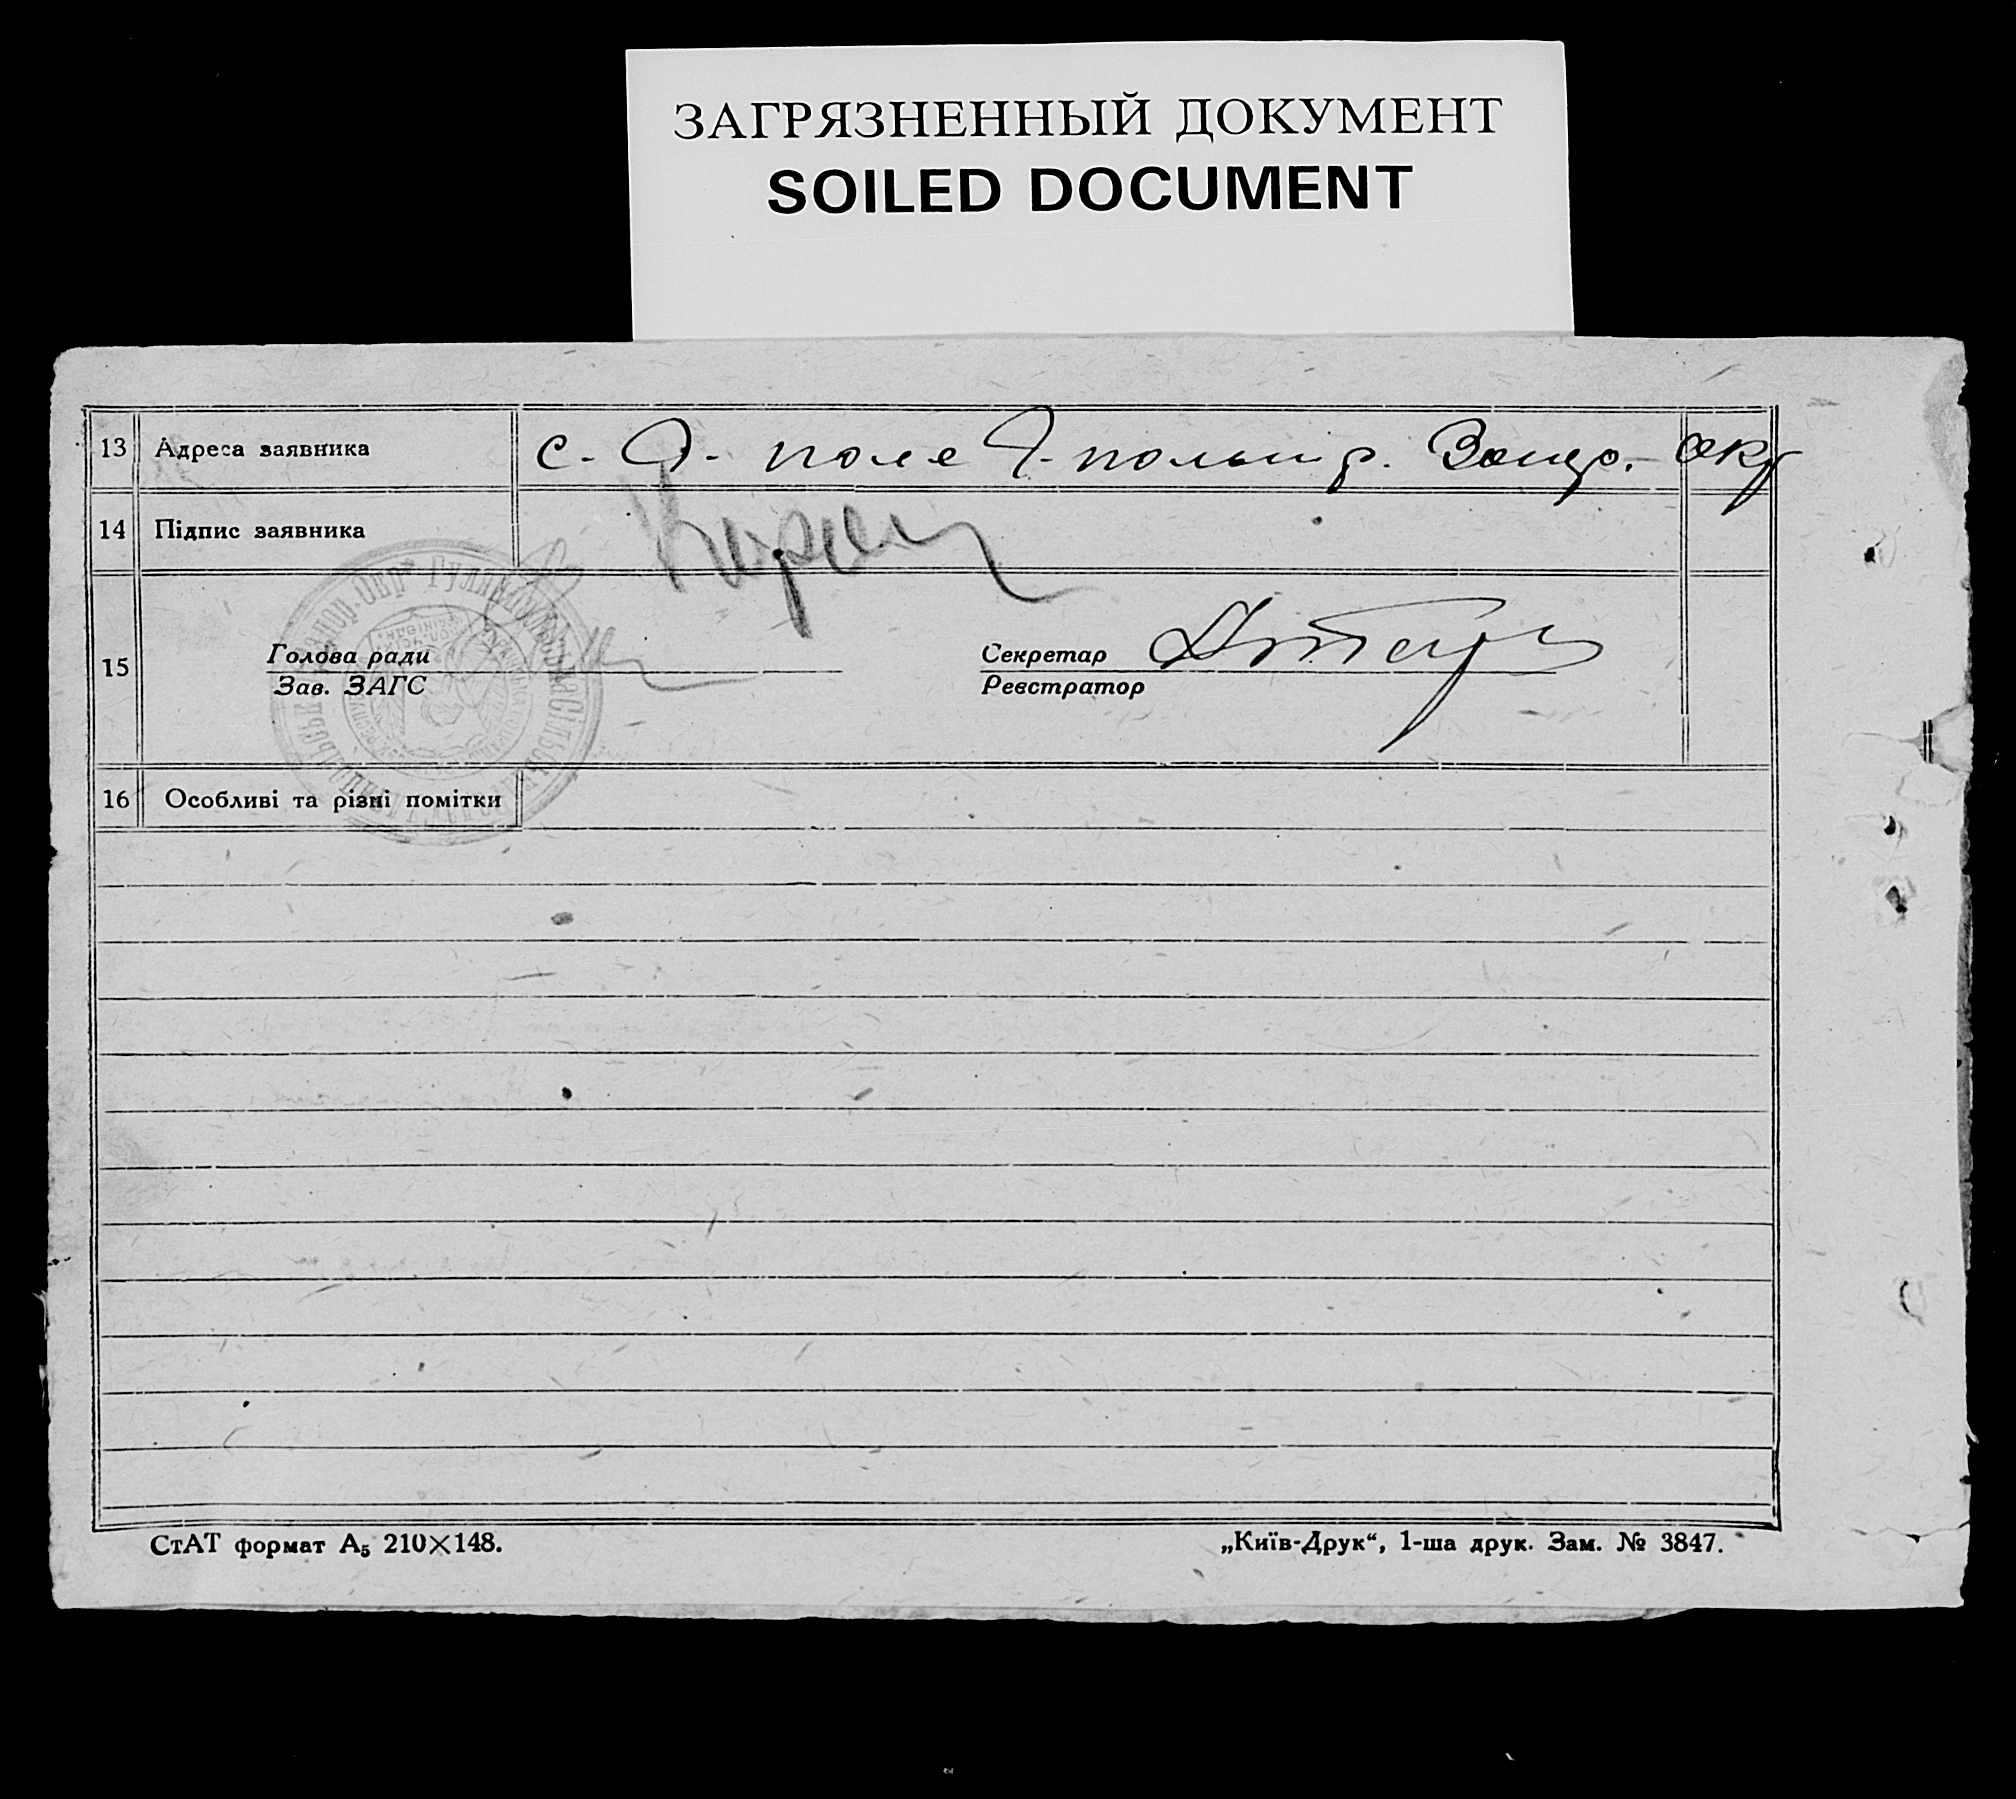 ЗАГРЯЗНЕННЫЙ ДОКУМЕНТ
SOILED DOCUMENT
13 Адреса заявника с. Г. поле Г. польськ р. Запор. окр
14 Підпис заявника
15 Голова ради Секретар
Зав. ЗАГС Реєстратор
16 Особливі та різні помітки
СтАТ формат А₅ 210×148. „Київ-Друк“, 1-ша друк. Зам. № 3847.